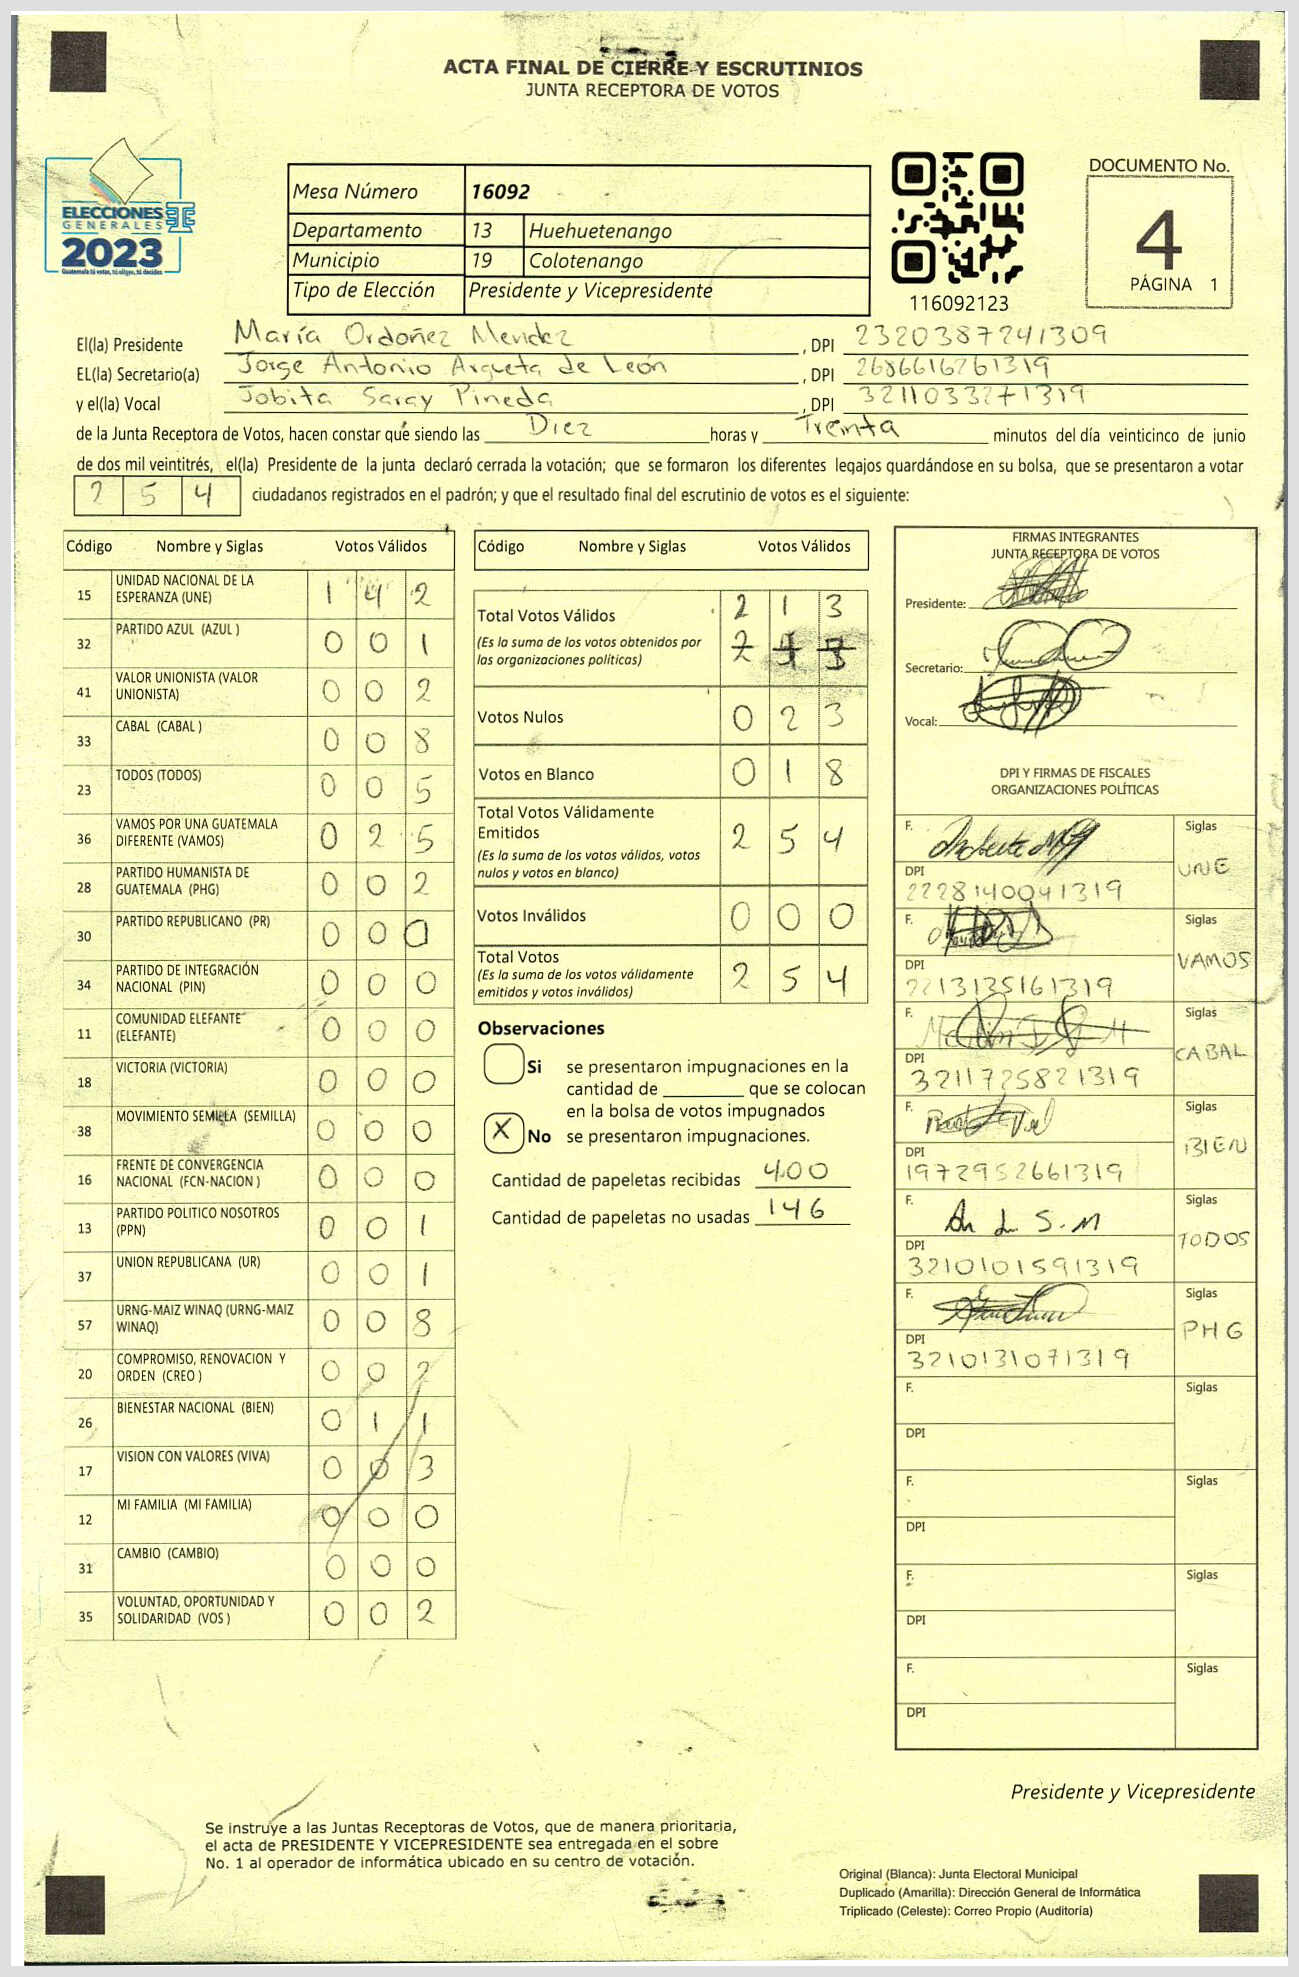 ACTA FINAL DE CIERRE Y ESCRUTINIOS
JUNTA RECEPTORA DE VOTOS
ELECCIONES
GENERALES
2023
Guatemala tú votas, tú eliges, tú decides
Mesa Número 16092
Departamento 13 Huehuetenango
Municipio 19 Colotenango
Tipo de Elección Presidente y Vicepresidente
116092123
DOCUMENTO No.
4
PÁGINA 1
El(la) Presidente María Ordoñez Mendez , DPI 2320387241309
EL(la) Secretario(a) Jorge Antonio Argueta de León , DPI 2686616261319
y el(la) Vocal Jobita Saray Pineda , DPI 3211033271319
de la Junta Receptora de Votos, hacen constar que siendo las Diez horas y Trenta minutos del día veinticinco de junio
de dos mil veintitrés, el(la) Presidente de la junta declaró cerrada la votación; que se formaron los diferentes legajos guardándose en su bolsa, que se presentaron a votar
2 5 4 ciudadanos registrados en el padrón; y que el resultado final del escrutinio de votos es el siguiente:
Código Nombre y Siglas Votos Válidos
15 UNIDAD NACIONAL DE LA ESPERANZA (UNE) 1 4 2
32 PARTIDO AZUL (AZUL ) 0 0 1
41 VALOR UNIONISTA (VALOR UNIONISTA) 0 0 2
33 CABAL (CABAL ) 0 0 8
23 TODOS (TODOS) 0 0 5
36 VAMOS POR UNA GUATEMALA DIFERENTE (VAMOS) 0 2 5
28 PARTIDO HUMANISTA DE GUATEMALA (PHG) 0 0 2
30 PARTIDO REPUBLICANO (PR) 0 0 0
34 PARTIDO DE INTEGRACIÓN NACIONAL (PIN) 0 0 0
11 COMUNIDAD ELEFANTE (ELEFANTE) 0 0 0
18 VICTORIA (VICTORIA) 0 0 0
38 MOVIMIENTO SEMILLA (SEMILLA) 0 0 0
16 FRENTE DE CONVERGENCIA NACIONAL (FCN-NACION ) 0 0 0
13 PARTIDO POLITICO NOSOTROS (PPN) 0 0 1
37 UNION REPUBLICANA (UR) 0 0 1
57 URNG-MAIZ WINAQ (URNG-MAIZ WINAQ) 0 0 8
20 COMPROMISO, RENOVACION Y ORDEN (CREO ) 0 0 2
26 BIENESTAR NACIONAL (BIEN) 0 1 1
17 VISION CON VALORES (VIVA) 0 0 3
12 MI FAMILIA (MI FAMILIA) 0 0 0
31 CAMBIO (CAMBIO) 0 0 0
35 VOLUNTAD, OPORTUNIDAD Y SOLIDARIDAD (VOS ) 0 0 2
Código Nombre y Siglas Votos Válidos
Total Votos Válidos 2 1 3
(Es la suma de los votos obtenidos por
las organizaciones políticas)
Votos Nulos 0 2 3
Votos en Blanco 0 1 8
Total Votos Válidamente
Emitidos 2 5 4
(Es la suma de los votos válidos, votos
nulos y votos en blanco)
Votos Inválidos 0 0 0
Total Votos
(Es la suma de los votos válidamente 2 5 4
emitidos y votos inválidos)
Observaciones
Si se presentaron impugnaciones en la
cantidad de ________ que se colocan
en la bolsa de votos impugnados
X No se presentaron impugnaciones.
Cantidad de papeletas recibidas 400
Cantidad de papeletas no usadas 146
FIRMAS INTEGRANTES
JUNTA RECEPTORA DE VOTOS
Presidente:
Secretario:
Vocal:
DPI Y FIRMAS DE FISCALES
ORGANIZACIONES POLÍTICAS
F. Siglas
UNE
DPI
2228140041319
F. Siglas
VAMOS
DPI
2213135161319
F. Siglas
CABAL
DPI
3211725821319
F. Siglas
BIEN
DPI
1972952661319
F. Siglas
TODOS
DPI
3210101591319
F. Siglas
PHG
DPI
3210131071319
F. Siglas
DPI
F. Siglas
DPI
F. Siglas
DPI
F. Siglas
DPI
Presidente y Vicepresidente
Se instruye a las Juntas Receptoras de Votos, que de manera prioritaria,
el acta de PRESIDENTE Y VICEPRESIDENTE sea entregada en el sobre
No. 1 al operador de informática ubicado en su centro de votación.
Original (Blanca): Junta Electoral Municipal
Duplicado (Amarilla): Dirección General de Informática
Triplicado (Celeste): Correo Propio (Auditoría)